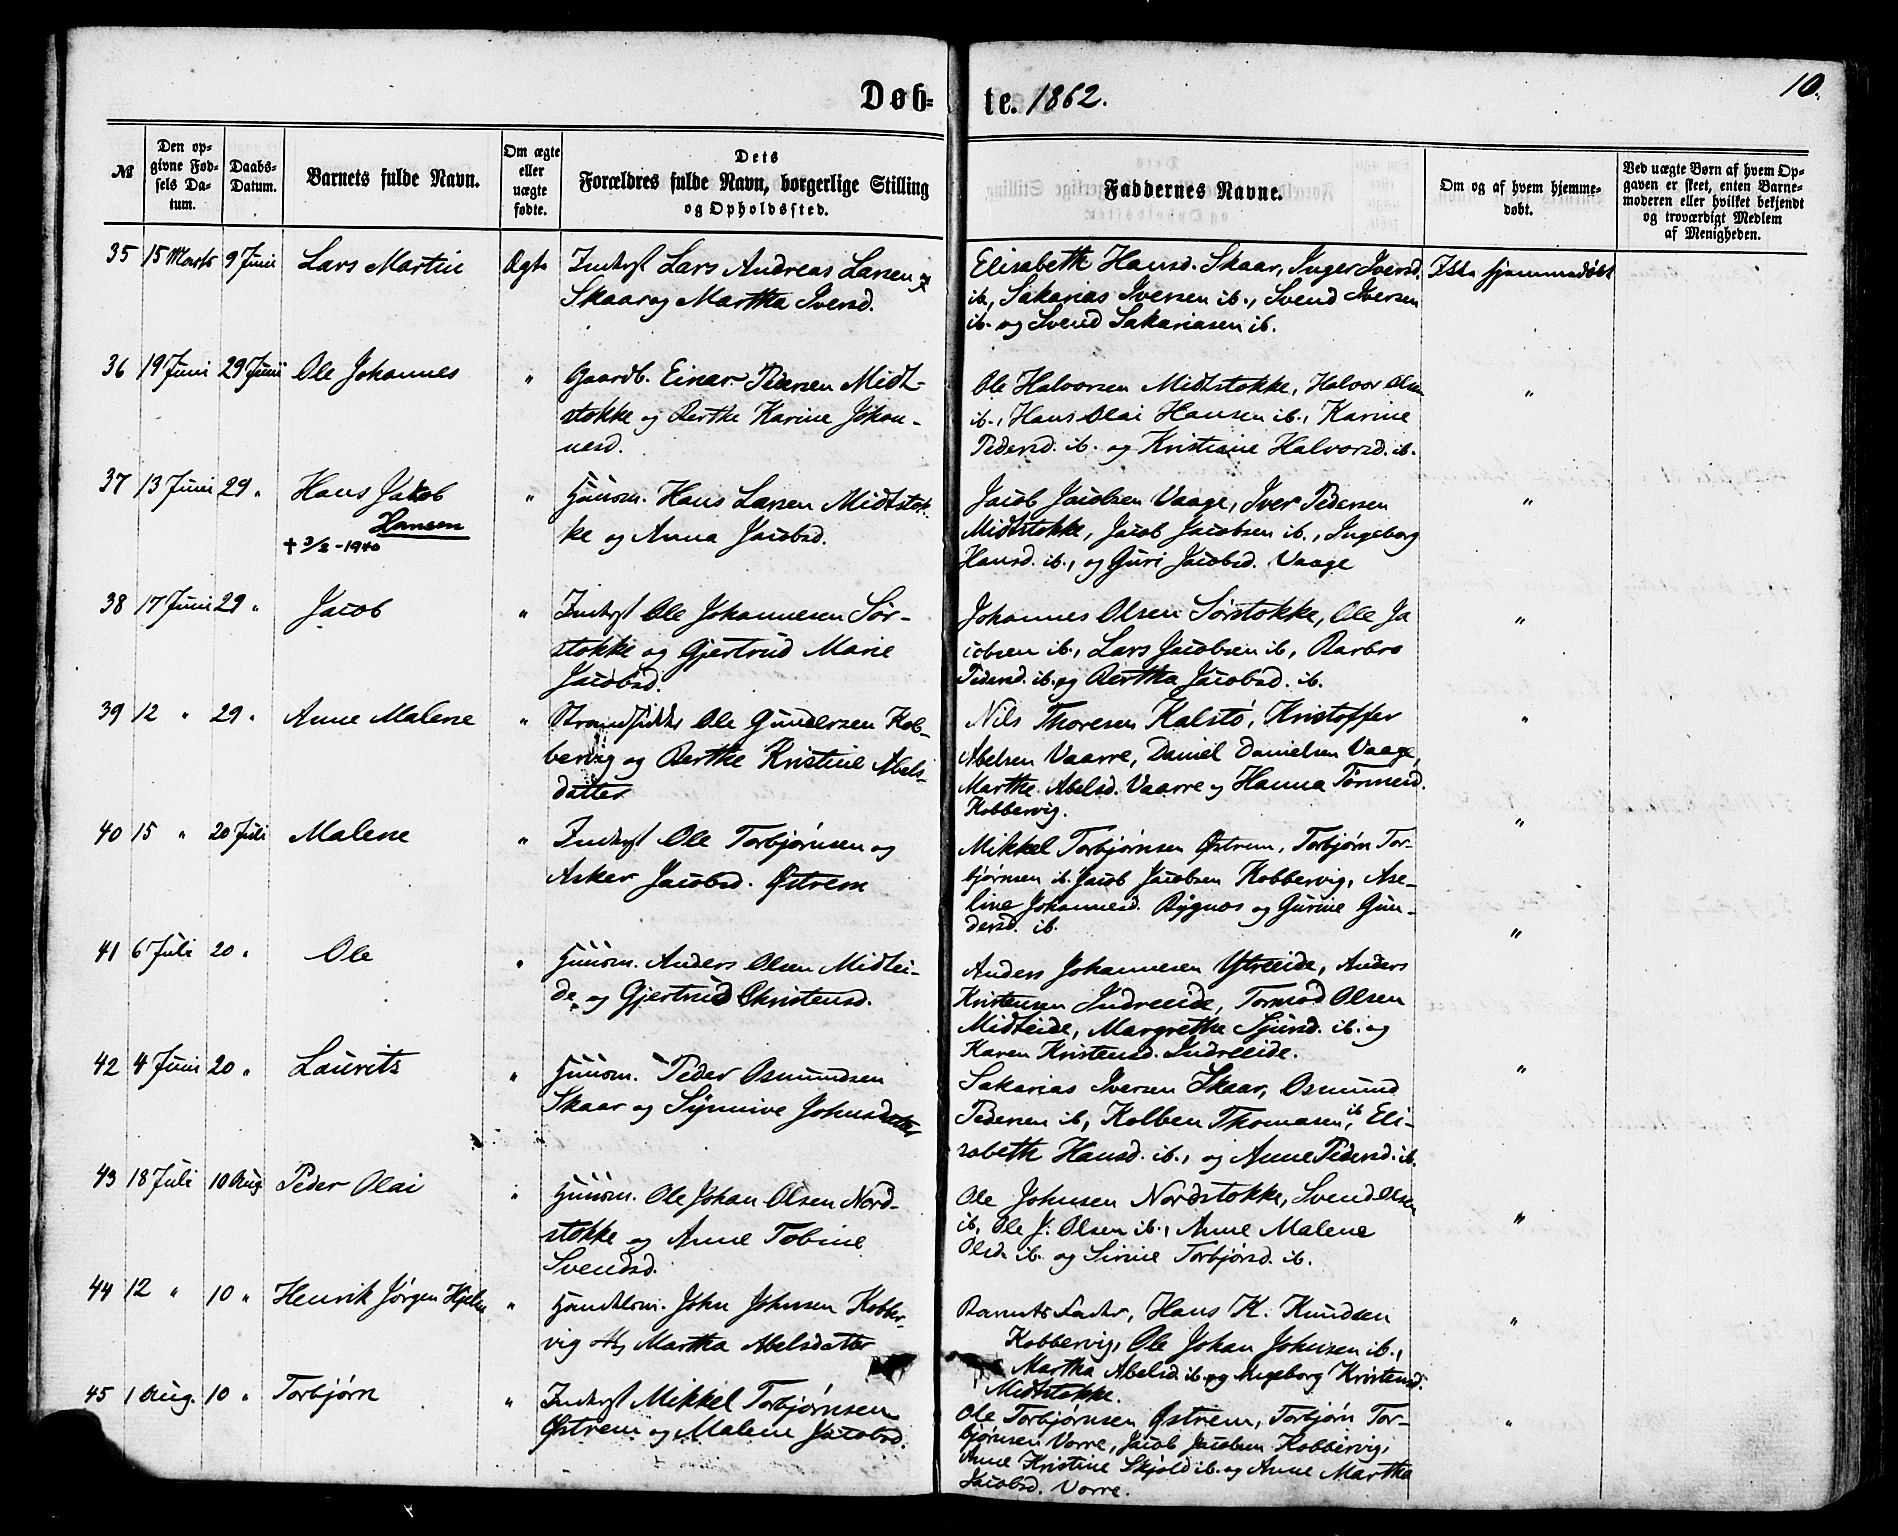 Døb-te. 1862.
10.
№
Den opgivne Fødsels Datum.
Daabs-Datum.
Barnets fulde Navn.
Om ægte eller uægte fødte.
Dets Forældres fulde Navn, borgerlige Stilling og Opholdssted.
Faddernes Navne.
Om og af hvem hjemmedøbt.
Ved uægte Børn af hvem Opgaven er skeet, enten Barnemoderen eller hvilket bekjendt og troværdigt Medlem af Menigheden.
35 15 Marts 9 Juni Lars Martin Ægte
Lars Andreas Larsen
Skaar og Martha Iversd.
Elisabeth Hansd. Skaar, Inger Iversd.
ib, Sakarias Iversen ib., Svend Iversen
ib. og Svend Sakariasen ib.
Ikke hjemmedøbt
36 19 Juni 29 Juni Ole Johannes "
Gaardb. Einar Pedersen Midt-
stokke og Berthe Karine Johan-
nesd.
Ole Halvorsen Midtstokke, Halvor Olsen
ib., Hans Olai Hansen ib., Karine
Pedersd. ib. og Kristiane Halvorsd. ib.
"
37 13 Juni 29 " Hans Jakob "
Hansen
+ 3/2-1940
Huusm. Hans Larsen Midtstok-
ke og Anna Jacobsd.
Jacob Jacobsen Vaage, Iver Pedersen
Midtstokke, Jacob Jacobsen ib., Ingeborg
Hansd. ib., og Guri Jacobsd. Vaage
"
38 17 Juni 29 " Jacob "
Ole Johannesen Sør-
stokke og Gjertrud Marie
Jacobsd.
Johannes Olsen Sørstokke, Ole Ja
cobsen ib., Lars Jacobsen ib, Barbro
Pedersd. ib. og Bertha Jacobsd. ib.
"
39 12 " 29 " Anne Malene "
Strandsidder Ole Gundersen Kob-
bervig og Berthe Kristine Abels-
datter
Nils Thoresen Kalstø, Kristoffer
Abelsen Vaarre, Daniel Danielsen Vaage,
Marthe Abelsd. Vaarre og Hanna
Kobbervig.
"
40 15 " 20 Juli Malene "
Ole Torbjørnsen og
Jacobsd. Østrem
Mikkel Torbjørnsen Østrem, Torbjørn Tor-
bjørnsen ib. Jacob Jacobsen Kobbervig, Ase-
line Johannesd. Bygnes og Gurine Gun-
dersd. ib.
"
41 6 Juli 20 " Ole "
Huusm. Anders Olsen Midtei-
de og Gjertrud Christensd.
Anders Johannesen Ytreeide, Anders
Kristensen Indreeide, Tormod Olsen
Midteide, Margrethe Sjursd. ib. og
Karen Kristensd. Indreeide.
"
42 4 Juni 20 " Laurits "
Huusm. Peder Osmundsen
Skaar og Synnive Johnsdatter
Sakarias Iversen Skaar, Osmund
Pedersen ib, Kolben Thomasen ib, Eli-
sabeth Hansd. ib., og Anne Pedersd. ib.
"
43 18 Juli 10 Aug Peder Olai "
Huusm. Ole Johan Olsen Nord-
stokke og Anne Tobine
Svendsd.
Ole Johnsen Nordstokke, Svend Olsen
ib, Ole J. Olsen ib., Anne Malene
Olsd. ib. og Sirine Torbjørsd. ib.
44 12 " 10 " Henrik Jørgen Hjelm "
Handelsm. John Johnsen Kobber-
vig og Martha Abelsdatter
Barnets Fader, Hans K. Knudsen
Kobbervig, Ole Johan Johnsen ib.,
Martha Abelsd. ib. og Ingeborg Kristensd.
Midtstokke.
"
45 1 Aug. 10 " Torbjørn "
Mikkel Torbjørnsen
Østrem og Malene Jacobsd.
Ole Torbjørnsen Østrem, Torbjørn Tor-
bjørnsen Vorre, Jacob Jacobsen Kobbervig,
Anne Kristine Skjold ib. og Anne Martha
Jacobsd. Vorre.
"